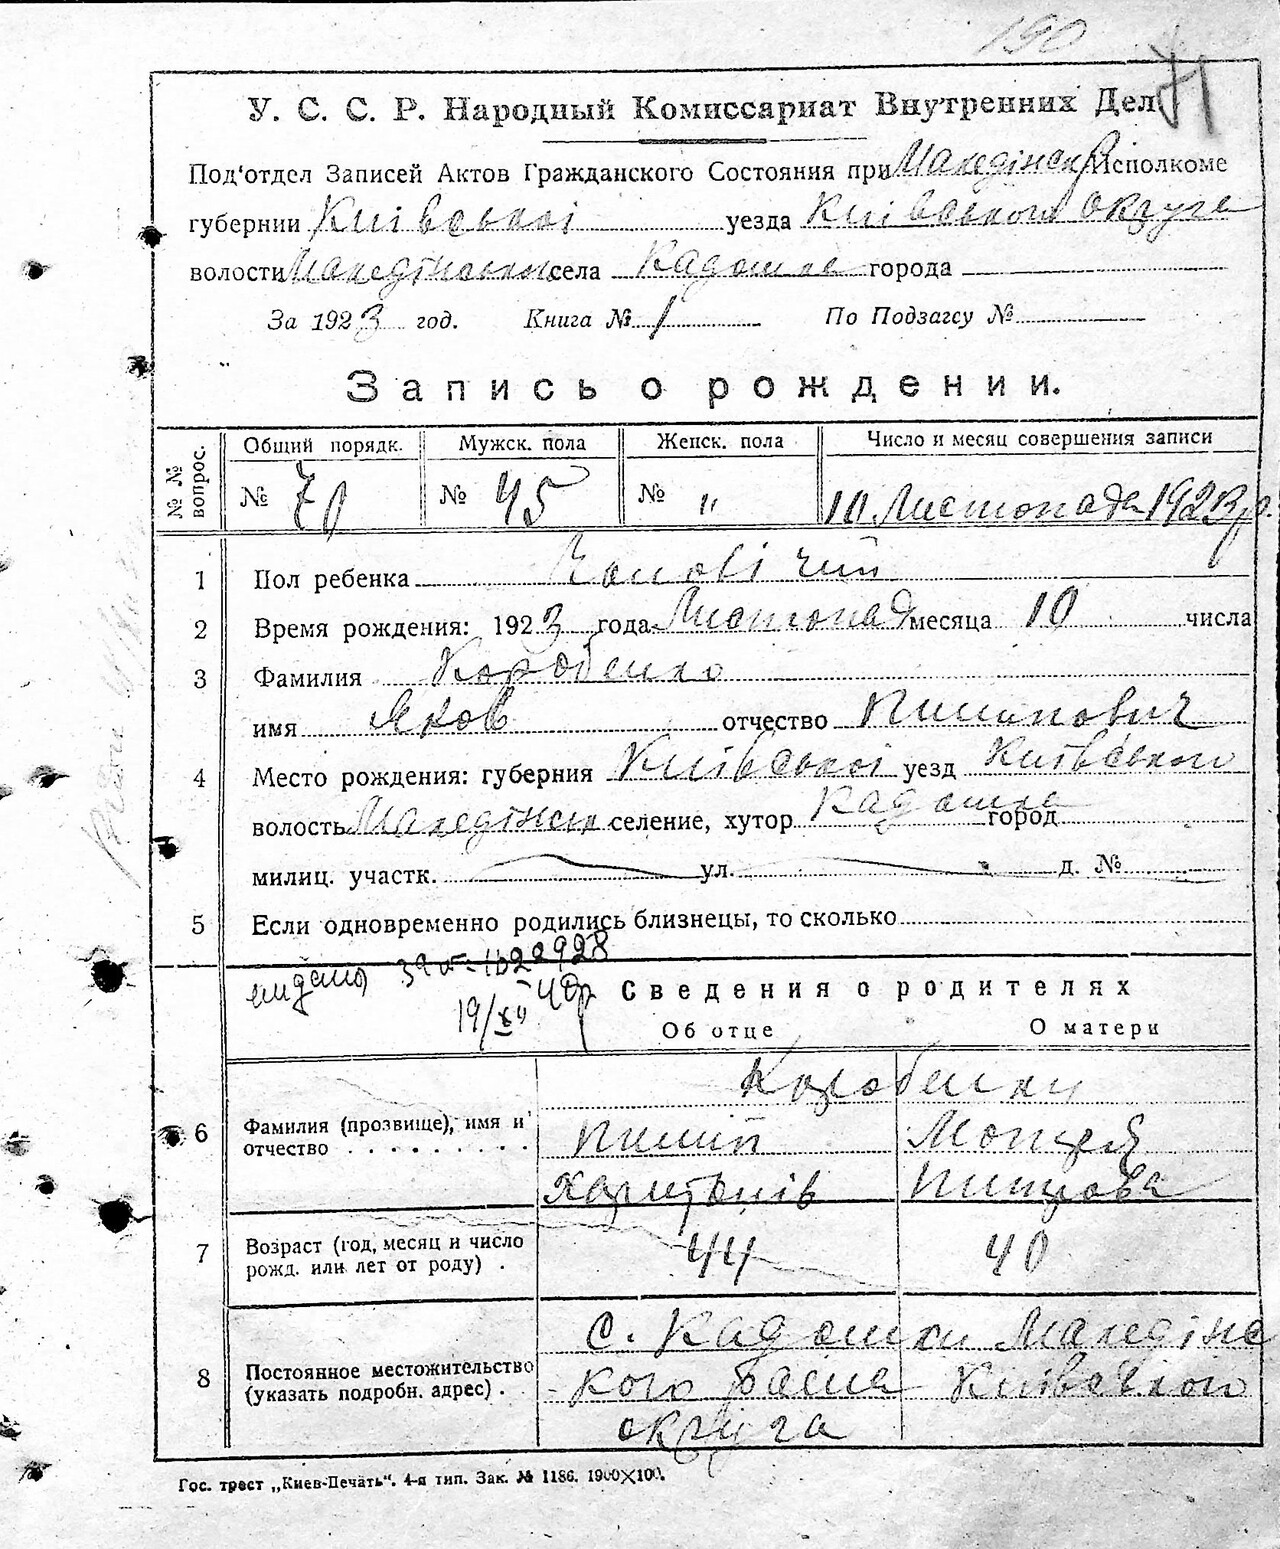 190
71
У. С. С. Р. Народный Комиссариат Внутренних Дел
Под'отдел Записей Актов Гражданского Состояния при Македінск. Исполкоме
губернии Київської уезда Київського округа
волости Македінськ. села Кадомка города
За 1923 год. Книга № 1 По Подзагсу №
Запись о рождении.
№ № вопрос. Общий порядк. Мужск. пола Женск. пола Число и месяц совершения записи
№ 70 № 45 № " 10 Листопада 1923 р.
1 Пол ребенка Чоловічий
2 Время рождения: 1923 года Листопад месяца 10 числа
3 Фамилия Коробенко
имя Яков отчество Пилипович
4 Место рождения: губерния Київської уезд Київського
волость Македінськ селение, хутор Кадомка город
милиц. участк. ул. д. №
5 Если одновременно родились близнецы, то сколько
видано
19/XII
Сведения о родителях
Об отце О матери
Коробенки
6 Фамилия (прозвище), имя и отчество Пилип Мотря
Харитонів Питрова
7 Возраст (год, месяц и число рожд. или лет от роду) . 44 40
8 Постоянное местожительство (указать подробн. адрес) . С. Кадомки Македінс
кого района Київського
округа
Гос. трест „Киев-Печать“. 4-я тип. Зак. № 1186. 1900×100.